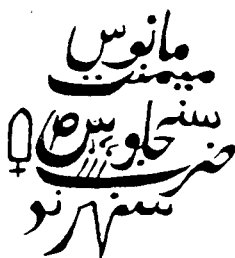 مانوس
میمنت
سنه جلوس
ضرب
سهرند